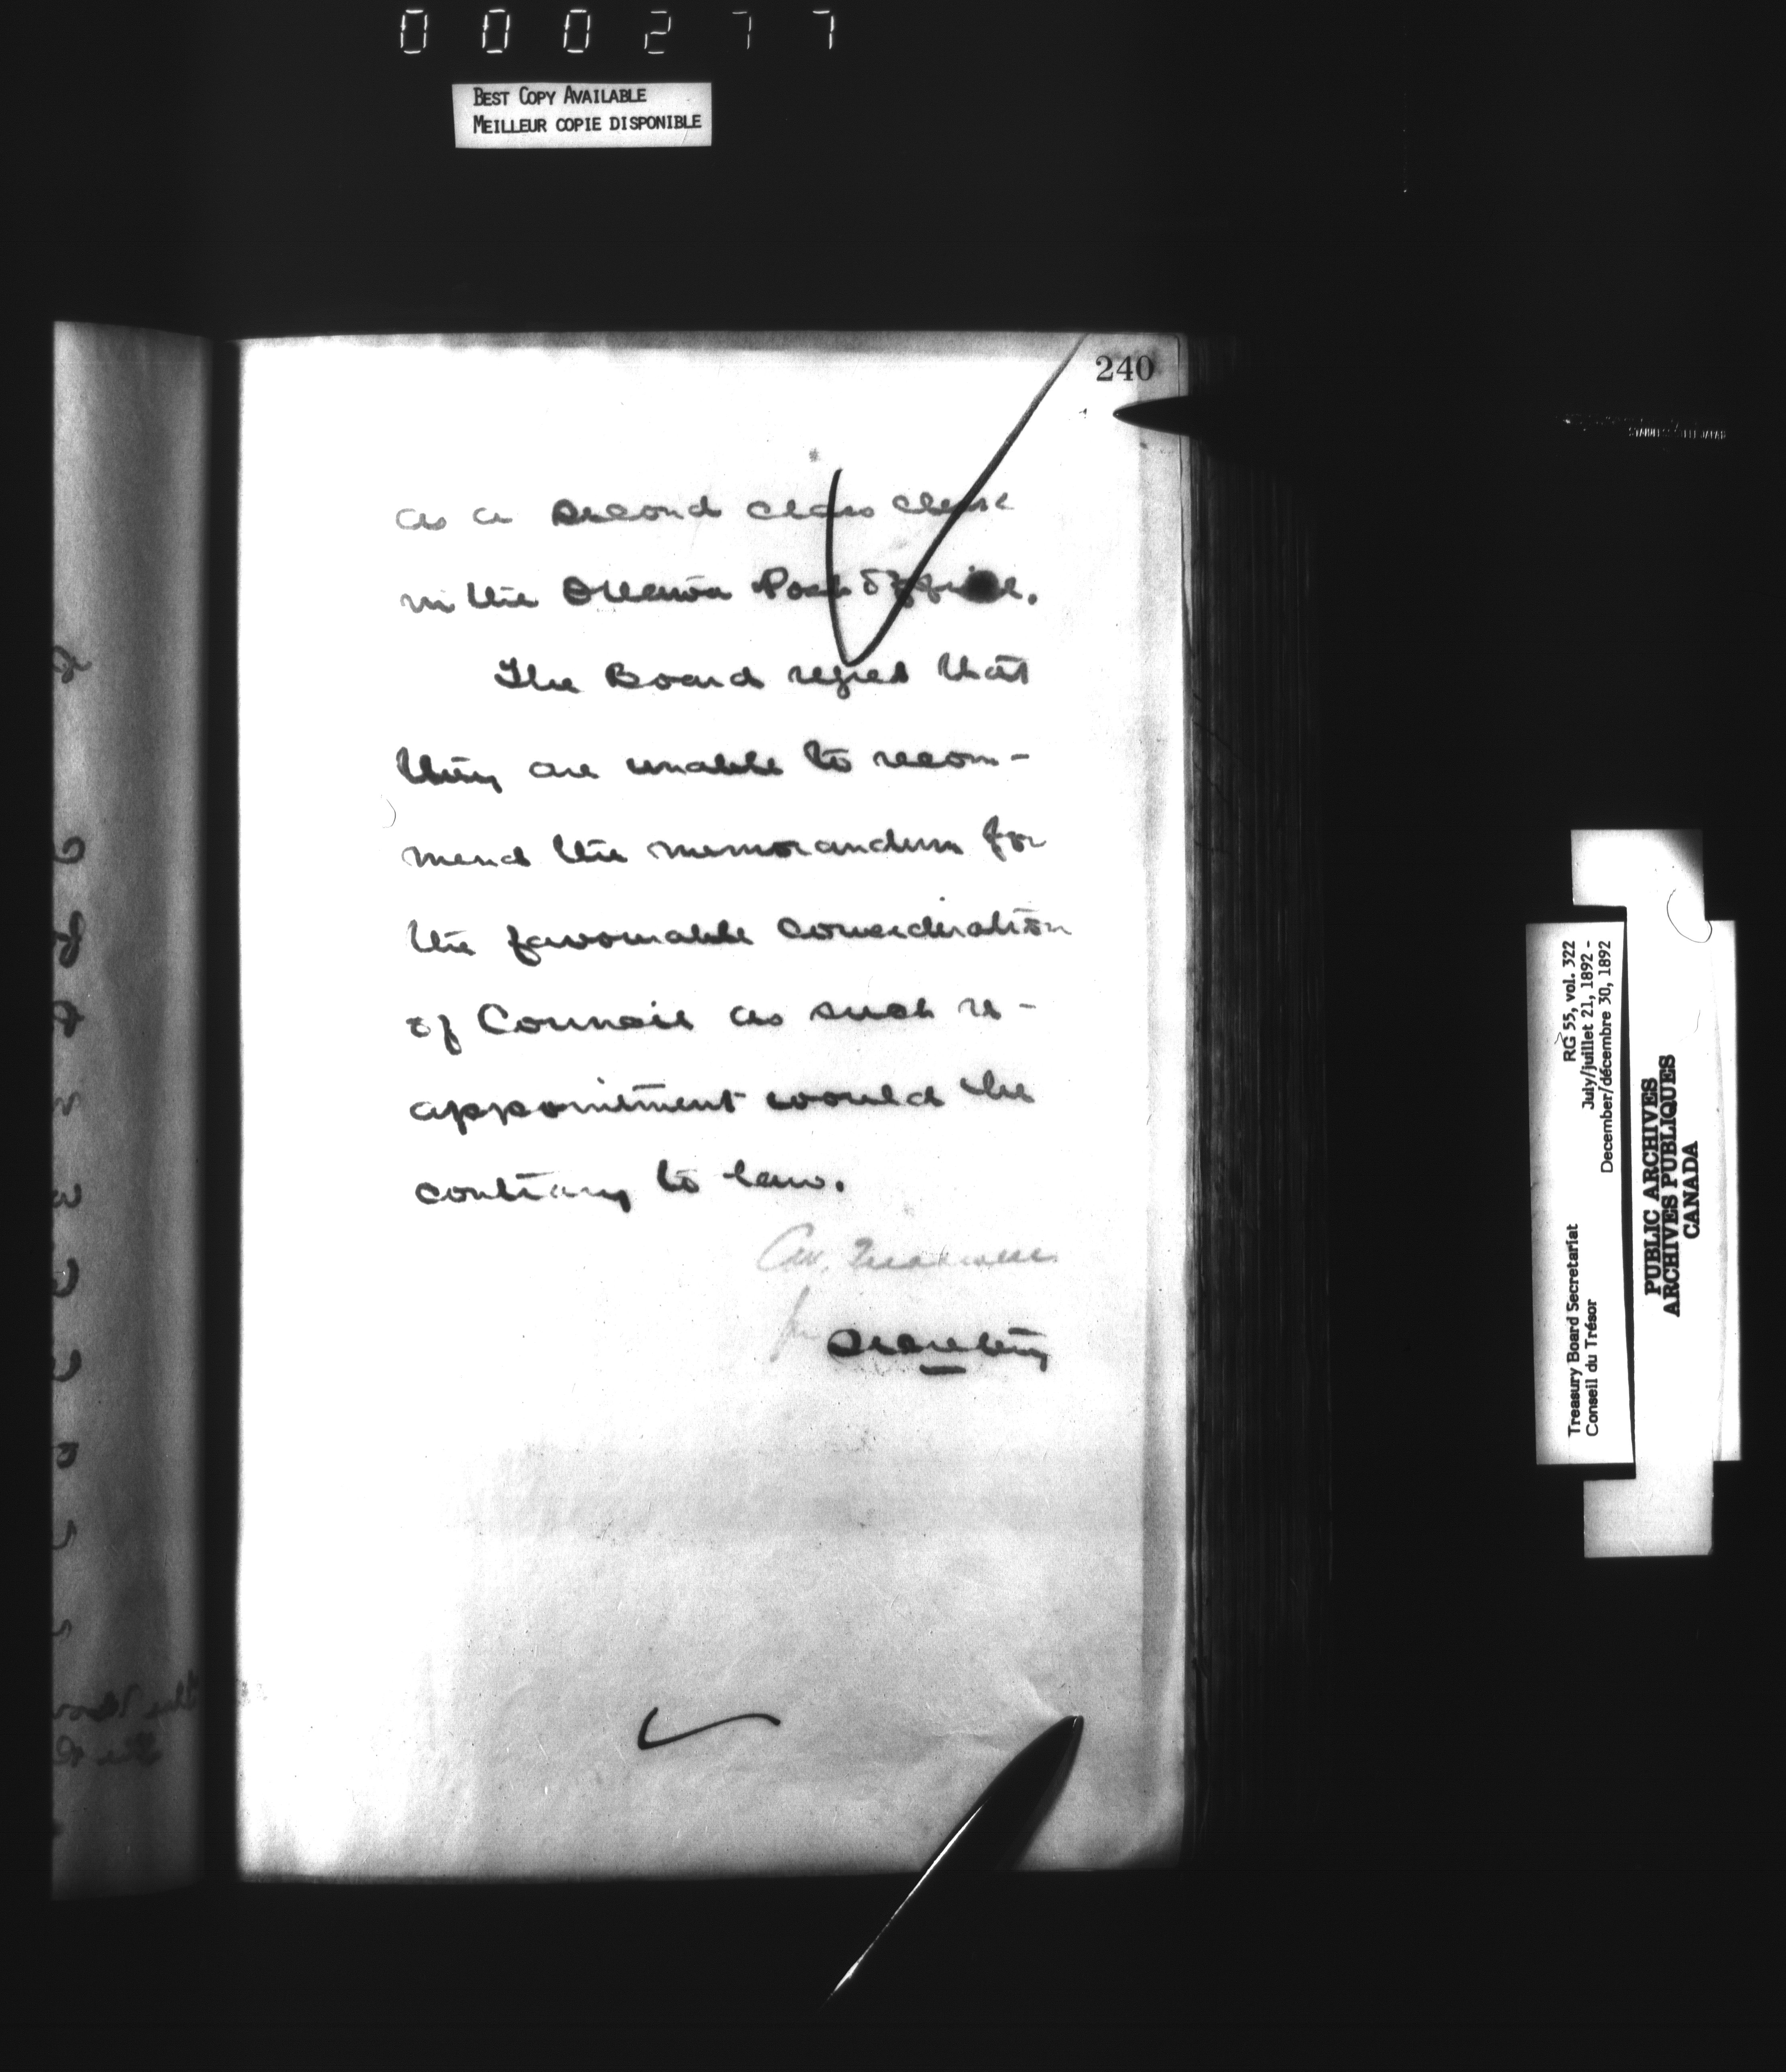 000277
BEST COPY AVAILABLE
MEILLEUR COPIE DISPONIBLE
240
as a second class clerk
in the Ottawa Post Office.
The Board regret that
they are unable to recom-
mend the memorandum for
the favourable consideration
of Council as such re-
appointment would be
contrary to law.
for
Secretary
RG 55, vol. 322
July/juillet 21, 1892 -
December/décembre 30, 1892
Treasury Board Secretariat
Conseil du Trésor
PUBLIC ARCHIVES
ARCHIVES PUBLIQUES
CANADA